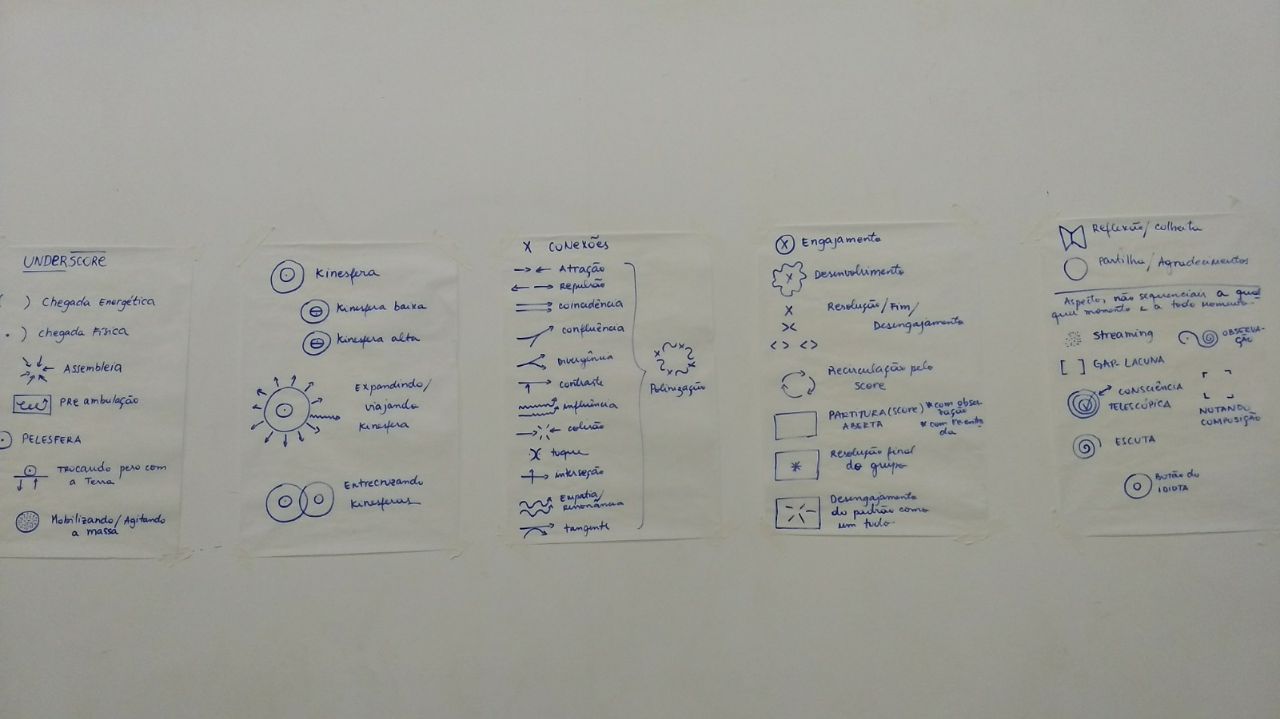 UNDERSCORE
Chegada Energética
chegada Física
Assembleia
PRE ambulação
PELESFERA
Trocando peso com
a Terra
Mobilizando/Agitando
a massa
Kinesfera
Kinesfera baixa
Kinesfera alta
Expandindo/
viajando
Kinesfera
Entrecruzando
Kinesferas
X CONEXÕES
Atração
Repulsão
coincidência
confluência
Divergência
contraste
influência
colisão
toque
interseção
Empatia/
ressonância
tangente
Polinização
Engajamento
Desenvolvimento
Resolução/Fim/
Desengajamento
Recirculação pelo
score
PARTITURA (SCORE)
ABERTA
*com obser
vação
*com re entra
da
Resolução final
do grupo
Desengajamento
do padrão como
um todo.
Reflexão/colheita
Partilha/Agradecimentos
Aspectos não sequenciais a qual
quer momento e a todo momento.
Streaming
OBSERVA-
ÇÃO
GAP-LACUNA
CONSCIÊNCIA
TELESCÓPICA
NOTANDO
COMPOSIÇÃO
ESCUTA
BOTÃO do
IDIOTA